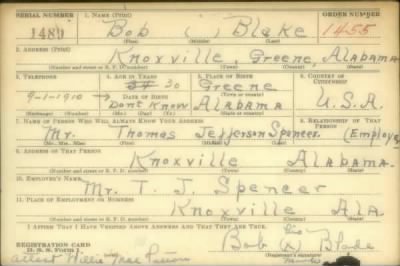 SERIAL NUMBER 1. NAME (Print) ORDER NUMBER
1480 Bob ( ) Blake 1455
(First) (Middle) (Last)
2. ADDRESS (Print)
Knoxville, Greene, Alabama
(Number and street or R. F. D. number) (Town) (County) (State)
3. TELEPHONE 4. AGE IN YEARS 5. PLACE OF BIRTH 6. COUNTRY OF CITIZENSHIP
30 Greene
9-1-1910 DATE OF BIRTH (Town or county)
Don't Know Alabama U.S.A.
(Exchange) (Number) (Mo.) (Day) (Yr.) (State or country)
7. NAME OF PERSON WHO WILL ALWAYS KNOW YOUR ADDRESS 8. RELATIONSHIP OF THAT PERSON
Mr. Thomas Jefferson Spencer (Employer
(Mr., Mrs., Miss) (First) (Middle) (Last)
9. ADDRESS OF THAT PERSON
Knoxville Alabama
(Number and street or R. F. D. number) (Town) (County) (State)
10. EMPLOYER'S NAME
Mr. T. J. Spencer
11. PLACE OF EMPLOYMENT OR BUSINESS
Knoxville Ala
(Number and street or R. F. D. number) (Town) (County) (State)
I AFFIRM THAT I HAVE VERIFIED ABOVE ANSWERS AND THAT THEY ARE TRUE.
REGISTRATION CARD his
D. S. S. Form 1 Bob (X) Blade
attest Willie Mae mark